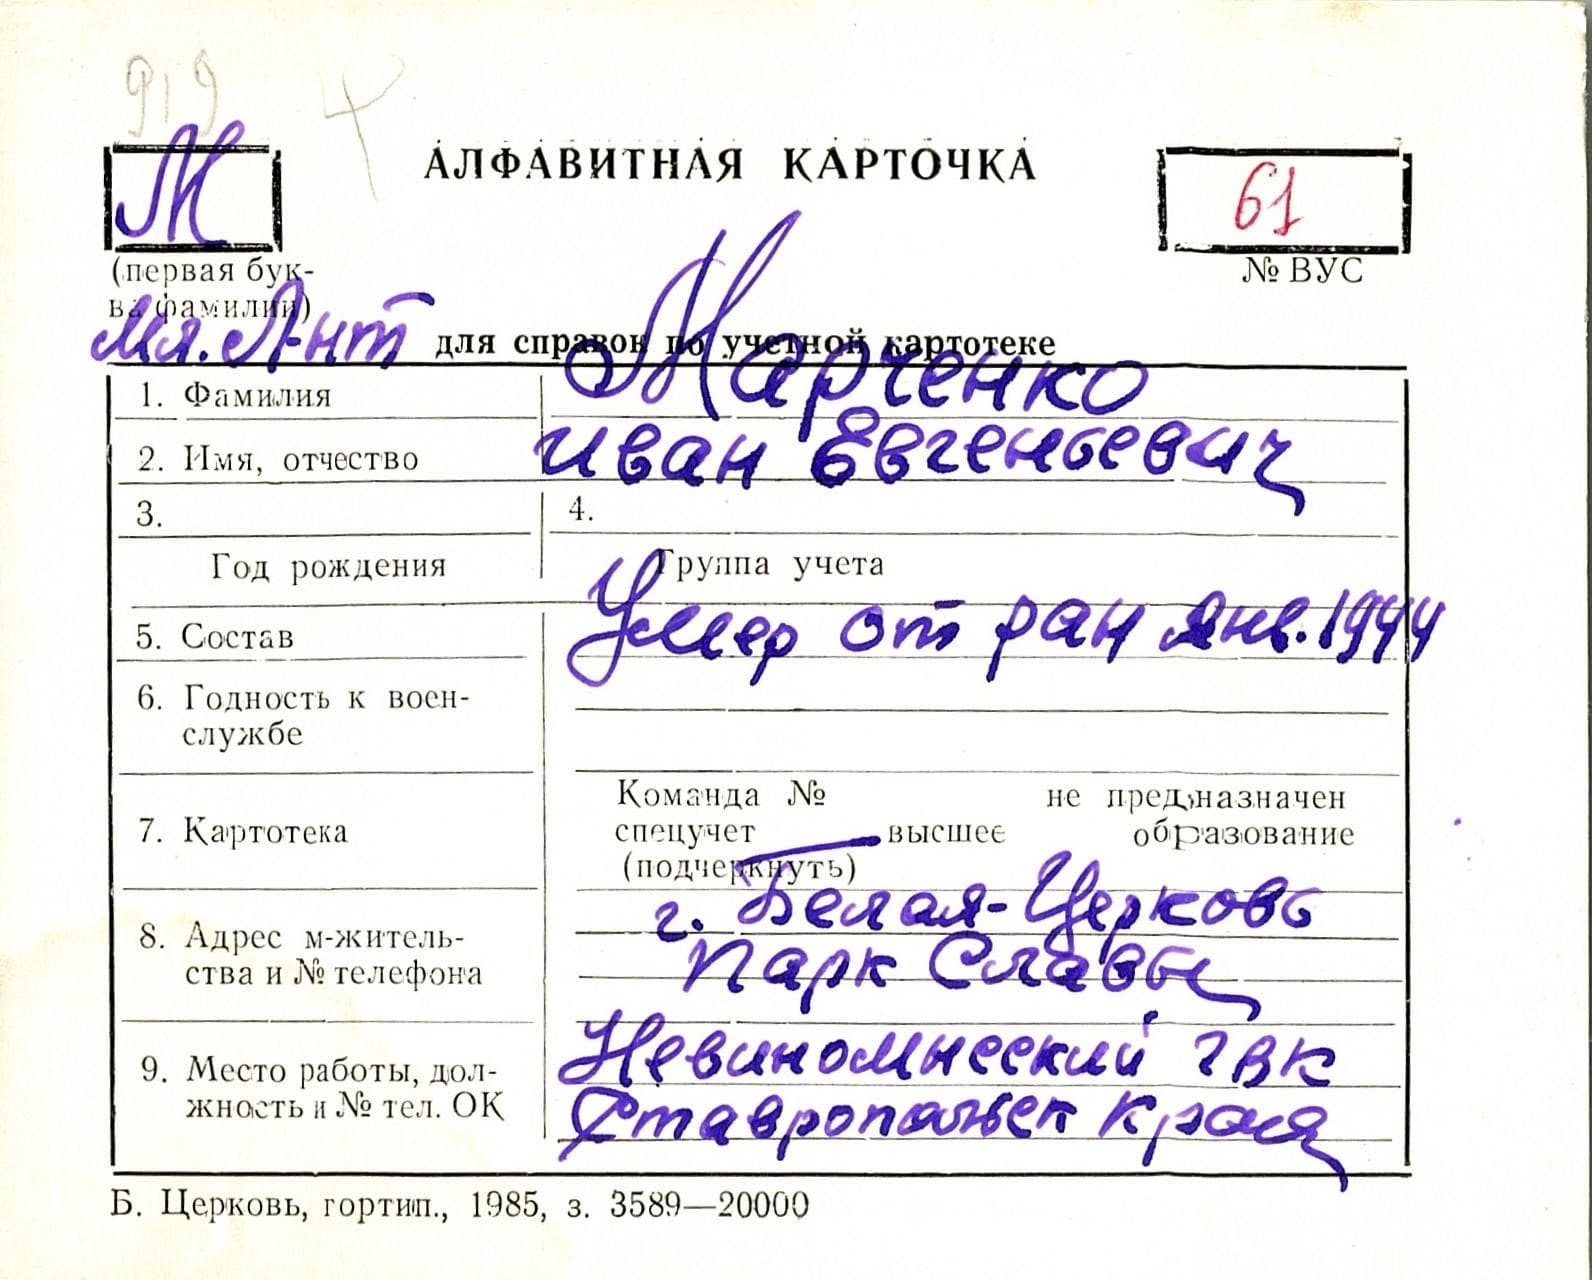 919
М
АЛФАВИТНАЯ КАРТОЧКА
61
(первая бук-
ва фамилии)
№ ВУС
мл. л-нт
для справок по учетной картотеке
1. Фамилия
Марченко
2. Имя, отчество
Иван Евгеньевич
3.
4.
Год рождения
Группа учета
5. Состав
Умер от ран янв. 1944
6. Годность к воен-
службе
7. Картотека
Команда № не предназначен
спецучет высшее образование
(подчеркнуть)
8. Адрес м-житель-
ства и № телефона
г. Белая-Церковь
Парк Славы
9. Место работы, дол-
жность и № тел. ОК
Невиномысский ГВК
Ставропольск края
Б. Церковь, гортип., 1985, з. 3589—20000